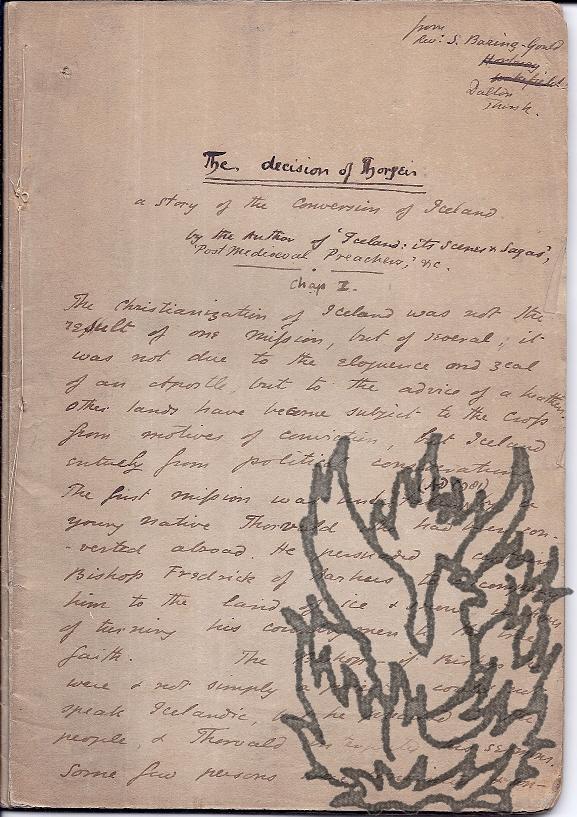 from
Rev: S. Baring-Gould
Dalton
Thirsk.
The decision of Thorgeir
a story of the conversion of Iceland
by the Author of "Iceland: its Scenes & Sagas",
"Post Mediaeval Preachers," &c.
Chap I.
The Christianization of Iceland was not the
result of one mission, but of several; it
was not due to the eloquence and zeal
of an apostle, but to the advice of a heathen.
Other lands have become subject to the Cross
from motives of conviction, but Iceland
entirely from political
The first mission was
young native Thorvald had been con-
-verted abroad. He persuaded a certain
Bishop Fredrick of to accompany
him to the land of ice & snow
of turning his countrymen to the true
faith. The
were & not simply a
speak Icelandic, he
people, & Thorvald
Some few persons